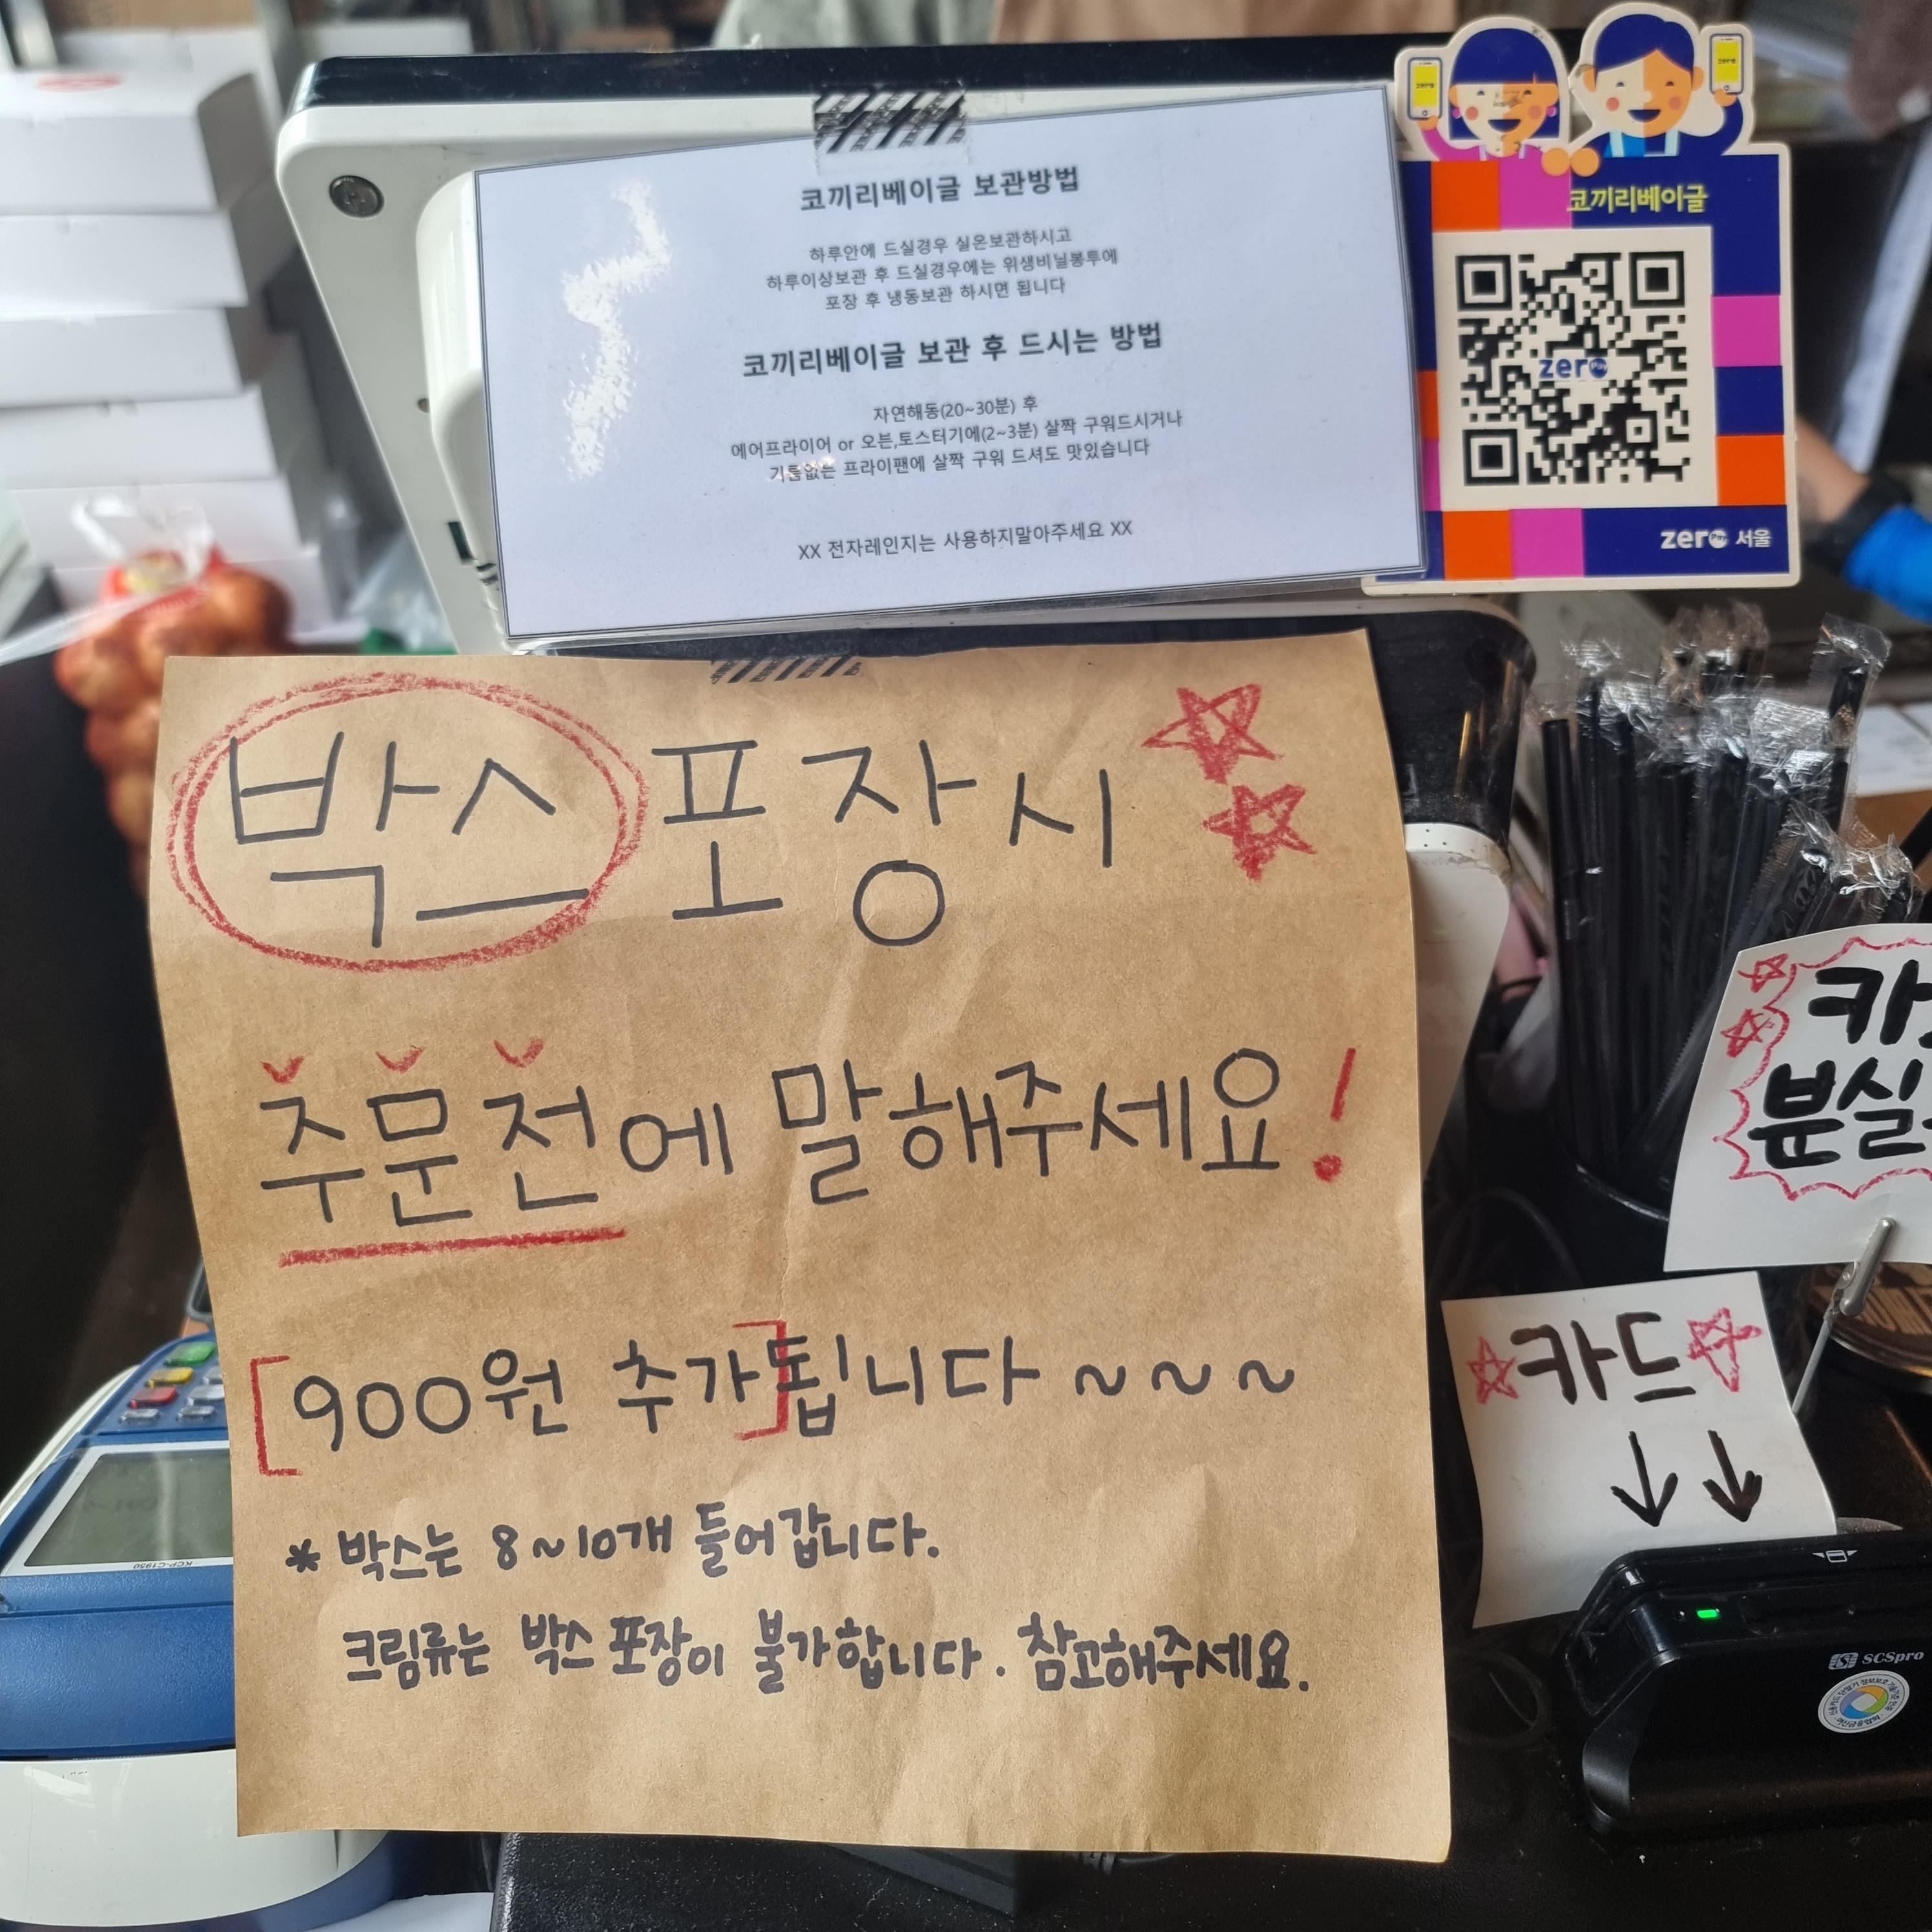 코끼리베이글 보관방법
하루안에 드실경우 실온보관하시고
하루이상보관 후 드실경우에는 위생비닐봉투에
포장 후 냉동보관 하시면 됩니다
코끼리베이글 보관 후 드시는 방법
자연해동(20~30분) 후
에어프라이어 or 오븐,토스터기에(2~3분) 살짝 구워드시거나
기름없는 프라이팬에 살짝 구워 드셔도 맛있습니다
XX 전자레인지는 사용하지말아주세요 XX
zero
zero
코끼리베이글
zero Pay
zero Pay 서울
박스 포장시
주문전에 말해주세요!
[900원 추가]됩니다 ~~~
* 박스는 8~10개 들어갑니다.
크림류는 박스 포장이 불가합니다. 참고해주세요.
분실
카드
↓ ↓
SCSpro
KCP-C1950